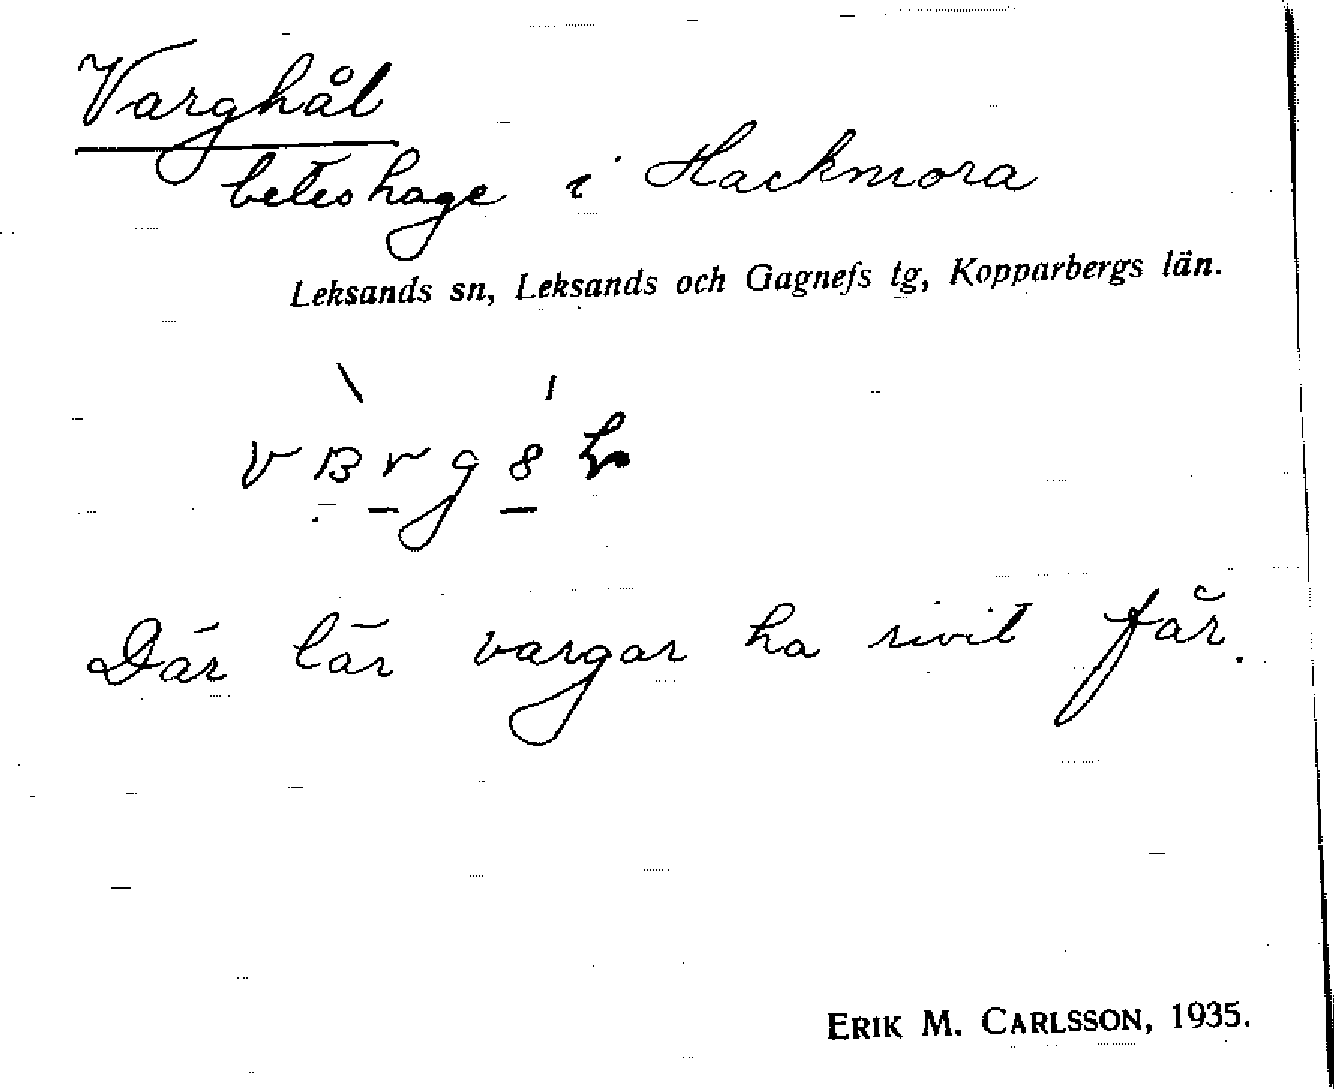 Varghål
beteshage i Hackmora
Leksands sn, Leksands och Gagnefs tg, Kopparbergs län.
Där lär vargar ha rivit får.
ERIK M. CARLSSON, 1935.